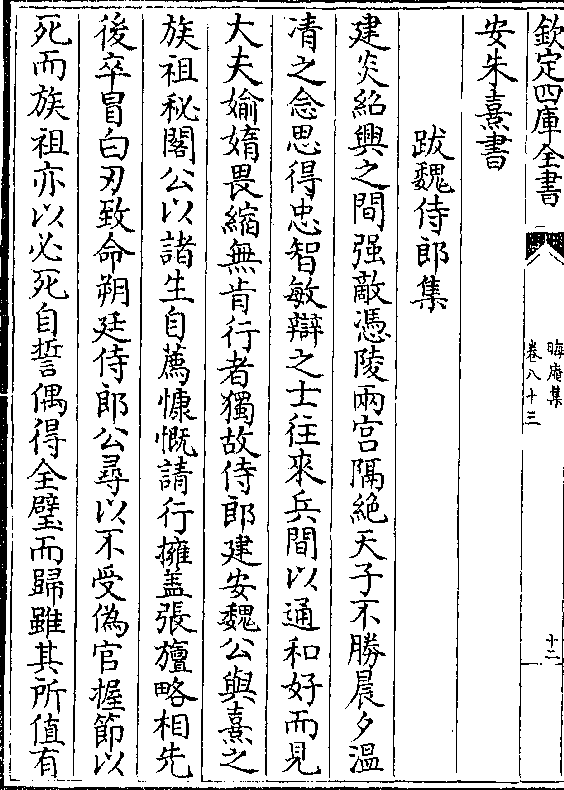 欽定四庫全書
晦庵集
卷八十三
十二
安朱熹書
跋魏侍郎集
建炎紹興之間强敵憑陵兩宫隔絶天子不勝晨夕温
凊之念思得忠智敏辯之士往來兵間以通和好而見
大夫媮惰畏縮無肯行者獨故侍郎建安魏公與熹之
族祖秘閣公以諸生自薦慷慨請行擁盖張旜略相先
後卒冒白刃致命朔廷侍郎公尋以不受偽官握節以
死而族祖亦以必死自誓偶得全璧而歸雖其所值有